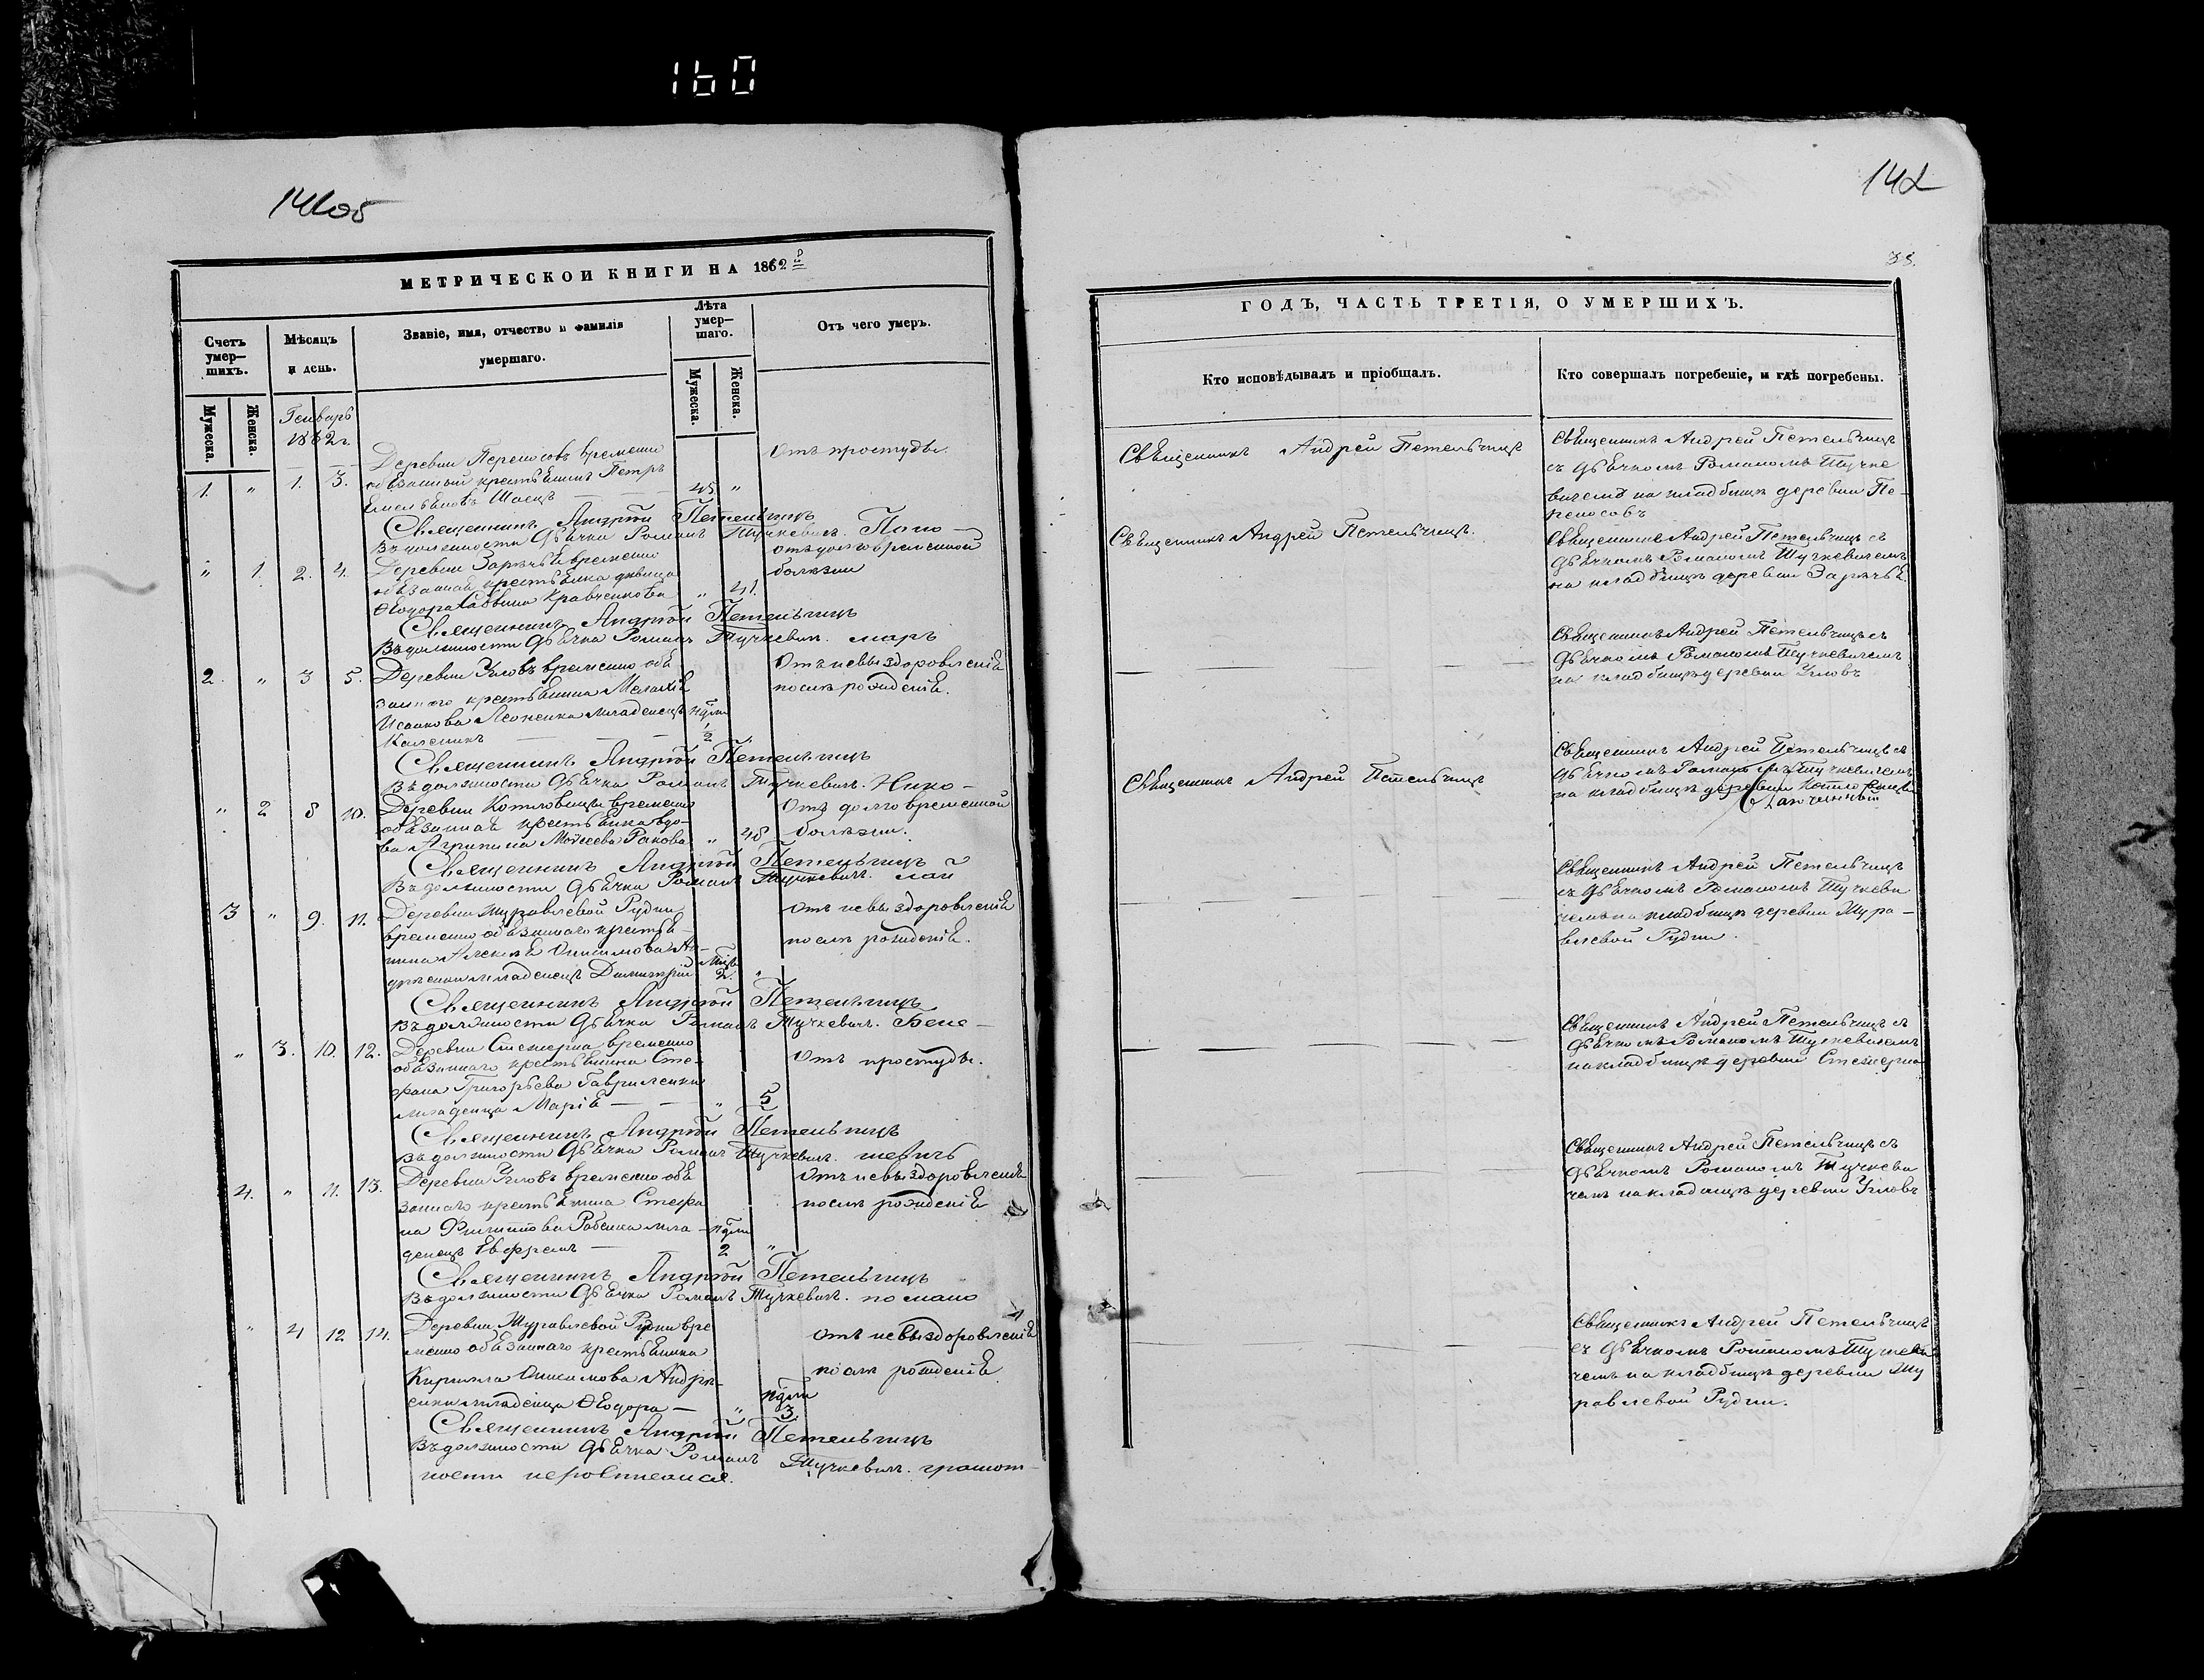 160
141об
МЕТРИЧЕСКОЙ КНИГИ НА 1862й
Счетъ умер-шихъ.
Мужеска.
Женска.
Мѣсяцъ и день.
Званіе, имя, отчество и фамилія умершаго.
Лѣта умер-шаго.
Мужеска.
Женска.
Отъ чего умеръ.
Генварь
1862 г.
1. " 1. 3.
Деревни Переносовъ временно
обязанный крестьянинъ Петръ
Емельяновъ 45 "
Отъ простуды.
Священникъ Андрей Петельчицъ
Въ должности Дьячка Романъ Тучкевичъ.
" 1. 2. 4.
Деревни Зарѣчья временно
обязанная крестьянка дѣвица
Ѳеодора Саввина Кравченкова " 41.
отъ долговременной
болѣзни
Священникъ Андрей Петельчицъ
Въ должности Дьячка Романъ Тучкевичъ.
2. " 3 5.
Деревни Угловъ временно обя
заннаго крестьянина
Исаакова младенецъ
Отъ невыздоровленія
послѣ рожденія.
Священникъ Андрей Петельчицъ
Въ должности Дьячка Романъ Тучкевичъ. Нико-
" 2 8 10.
Деревни временно
обязанная крестьянка вдо-
ва Агрипина Моисеева Ракова " 48
Отъ долговременной
болѣзни.
Священникъ Андрей Петельчицъ
Въ должности Дьячка Романъ Тучкевичъ. лай
3 " 9. 11.
Деревни Журавлевой Рудни
временно обязаннаго крестья-
нина Алексѣя Онисимова Ан-
дрѣенки младенецъ Димитрій 2. "
Отъ невыздоровленія
послѣ рожденія.
Священникъ Андрей Петельчицъ
Въ должности Дьячка Романъ Тучкевичъ. Бене-
" 3. 10. 12.
Деревни Стежерна временно
обязаннаго крестьянина Сте-
фана Григорьева Гавриленки
младенца Марія " 5
Отъ простуды.
Священникъ Андрей Петельчицъ
Въ должности Дьячка Романъ Тучкевичъ.
4. " 11. 13.
Деревни Угловъ временно обя
заннаго крестьянина Стефа
на Филиппова мла-
денецъ Ефремъ 2 "
Отъ невыздоровленія
послѣ рожденія
Священникъ Андрей Петельчицъ
Въ должности Дьячка Романъ Тучкевичъ.
" 4 12 14.
Деревни Журавлевой Рудни вре
менно обязаннаго крестьянина
Кирилла Онисимова Андрѣ-
енки младенца Ѳеодора " 3.
Отъ невыздоровленія
послѣ рожденія.
Священникъ Андрей Петельчицъ
Въ должности Дьячка Романъ Тучкевичъ.
142
38.
ГОДЪ, ЧАСТЬ ТРЕТІЯ, О УМЕРШИХЪ.
Кто исповѣдывалъ и пріобщалъ.
Кто совершалъ погребеніе, и гдѣ погребены.
Священникъ Андрей Петельчицъ
Священникъ Андрей Петельчицъ
съ Дьячкомъ Романомъ Тучке
вичемъ на кладбищѣ деревни Пе-
реносовъ
Священникъ Андрей Петельчицъ.
Священникъ Андрей Петельчицъ съ
Дьячкомъ Романомъ Тучкевичемъ
на кладбищѣ деревни Зарѣчья.
Священникъ Андрей Петельчицъ съ
Дьячкомъ Романомъ Тучкевичемъ
на кладбищѣ деревни Угловъ
Священникъ Андрей Петельчицъ
Священникъ Андрей Петельчицъ съ
Дьячкомъ Романомъ Тучкевичемъ
на кладбищѣ деревни
Священникъ Андрей Петельчицъ
съ Дьячкомъ Романомъ Тучкеви
чемъ на кладбищѣ деревни Жура-
влевой Рудни.
Священникъ Андрей Петельчицъ съ
Дьячкомъ Романомъ Тучкевичемъ
на кладбищѣ деревни Стежерна
Священникъ Андрей Петельчицъ съ
Дьячкомъ Романомъ Тучкеви
чемъ на кладбищѣ деревни Угловъ
Священникъ Андрей Петельчицъ
съ Дьячкомъ Романомъ Тучкеви
чемъ на кладбищѣ деревни Жу
равлевой Рудни.